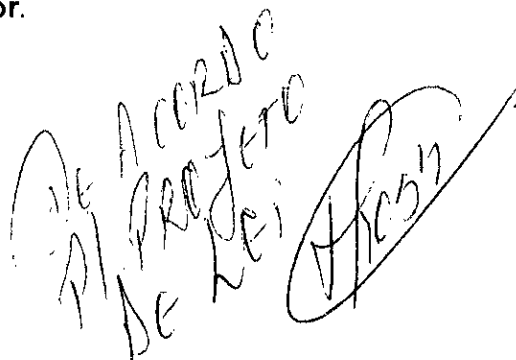 or.
DE ACORDO
P/ PROJETO
DE LEI